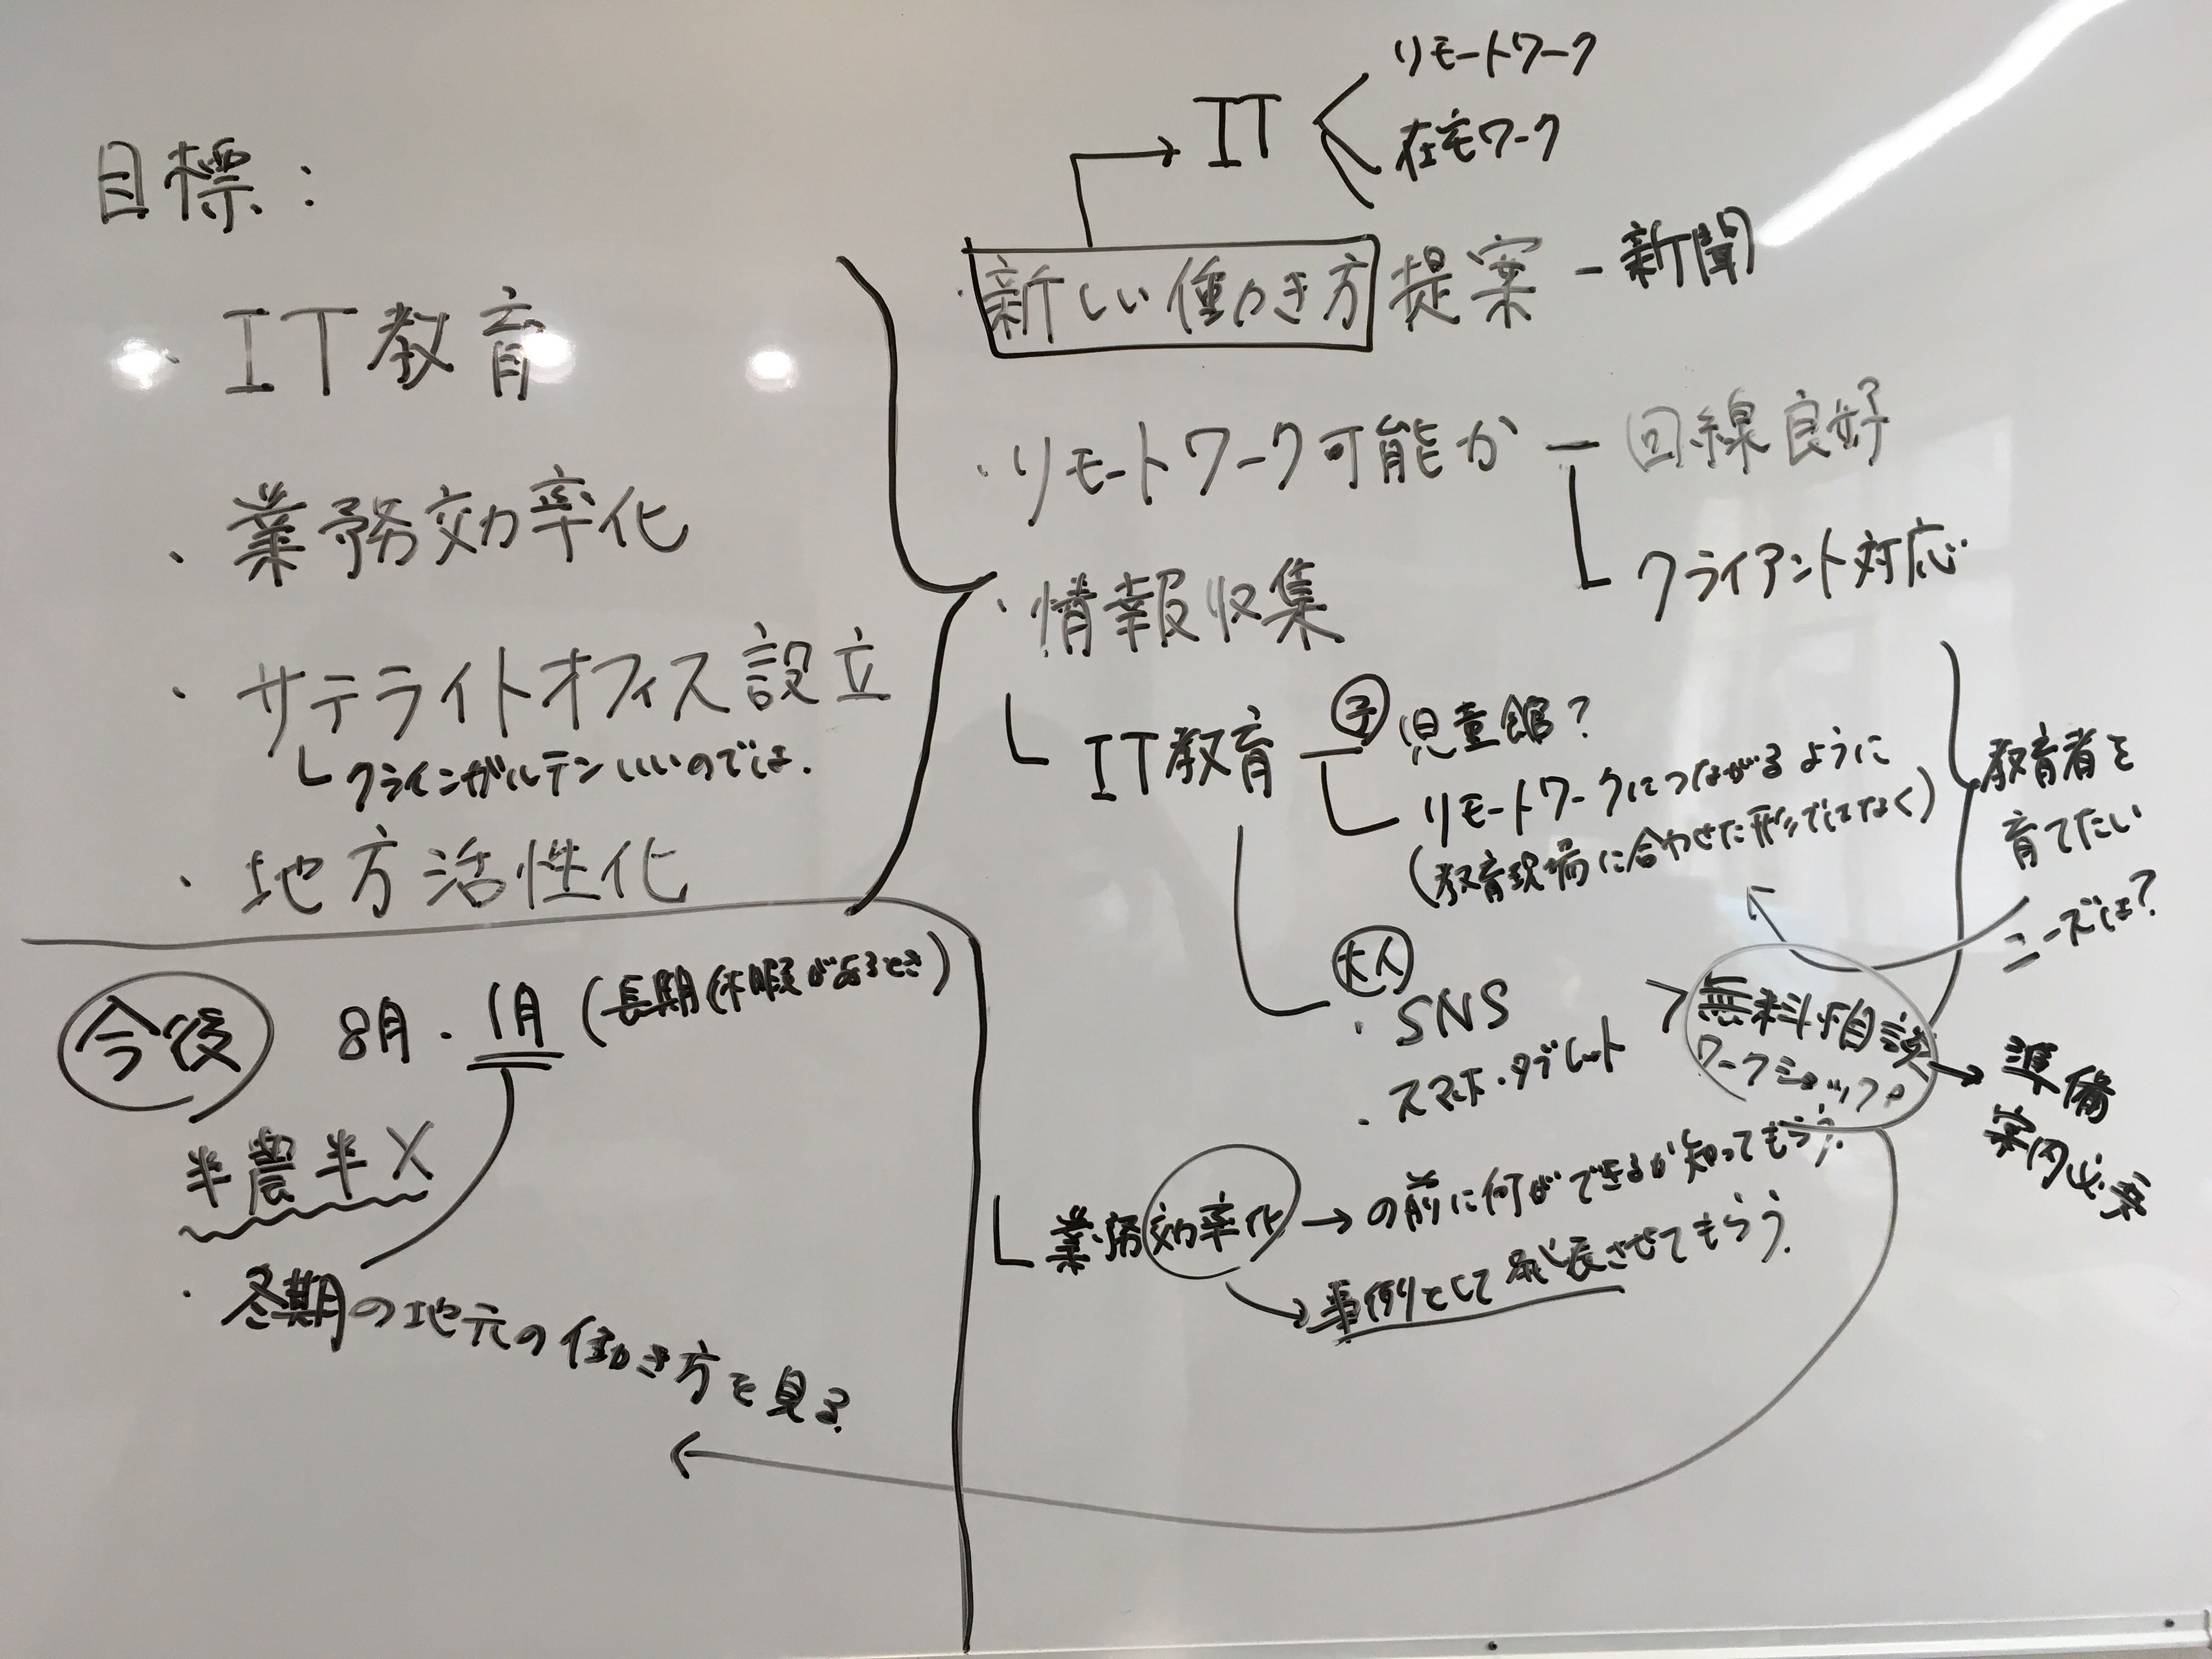 目標：
・IT教育
・業務効率化
・サテライトオフィス設立
クラインガルテンいいのでは.
・地方活性化
今後 8月・1月(長期休暇があるとき)
半農半X
・冬期の地元の働き方を見る
IT
リモートワーク
在宅ワーク
・新しい働き方提案 - 新聞
・リモートワーク可能か - 回線良好
クライアント対応
・情報収集
IT教育
子 児童館?
リモートワークにつながるように
(教育現場に合わせた形でなく)
教育者を
育てたい
ニーズは?
大人
・SNS
・スマホ・タブレット
無料相談
ワークショップ
準備
案内必要
業務効率化→の前に何ができるか知ってもらう.
事例として成長させてもらう.